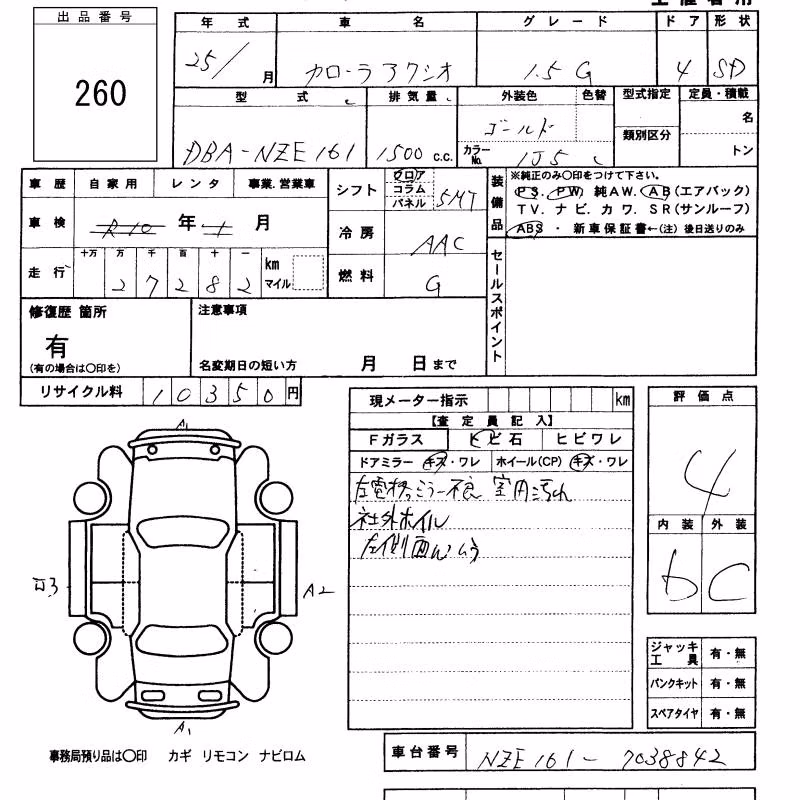 出品番号
260
年式 車名 グレード ドア 形状
25/ 月 カローラアクシオ 1.5 G 4 SD
型式 排気量 外装色 色替 型式指定 定員・積載
DBA-NZE161 1500 c.c. ゴールド 名
カラーNo. 1J5 類別区分 トン
車歴 自家用 レンタ 事業.営業車
車検 R10 年 1 月
走行 十万 万 千 百 十 一 km マイル
2 7 2 8 2
シフト フロア コラム パネル 5MT
冷房 AAC
燃料 G
装備品
※純正のみ〇印をつけて下さい。
PS. PW. 純AW. AB(エアバック)
TV. ナビ. カワ. SR(サンルーフ)
ABS ・ 新車保証書←(注) 後日送りのみ
セールスポイント
修復歴 箇所
有
(有の場合は〇印を)
注意事項
名変期日の短い方 月 日まで
リサイクル料 10350 円
現メーター指示 km
【査定員記入】
Fガラス トビ石 ヒビワレ
ドアミラー キズ・ワレ ホイール(CP) キズ・ワレ
左電格ミラー不良 室内汚れ
社外ホイル
左側面ムラ
評価点
4
内装 外装
b C
A1
A2
A1
ジャッキ工具 有・無
パンクキット 有・無
スペアタイヤ 有・無
事務局預り品は〇印 カギ リモコン ナビロム
車台番号 NZE161-7038842